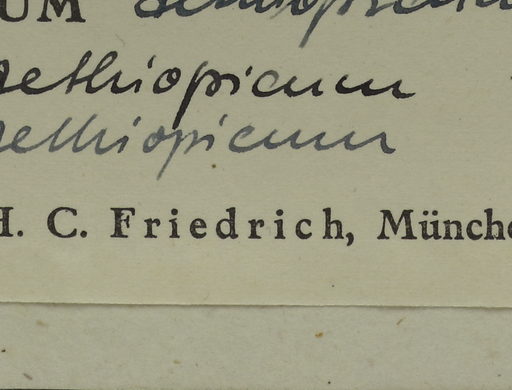 UM
aethiopicum
aethiopicum
H. C. Friedrich, Münche